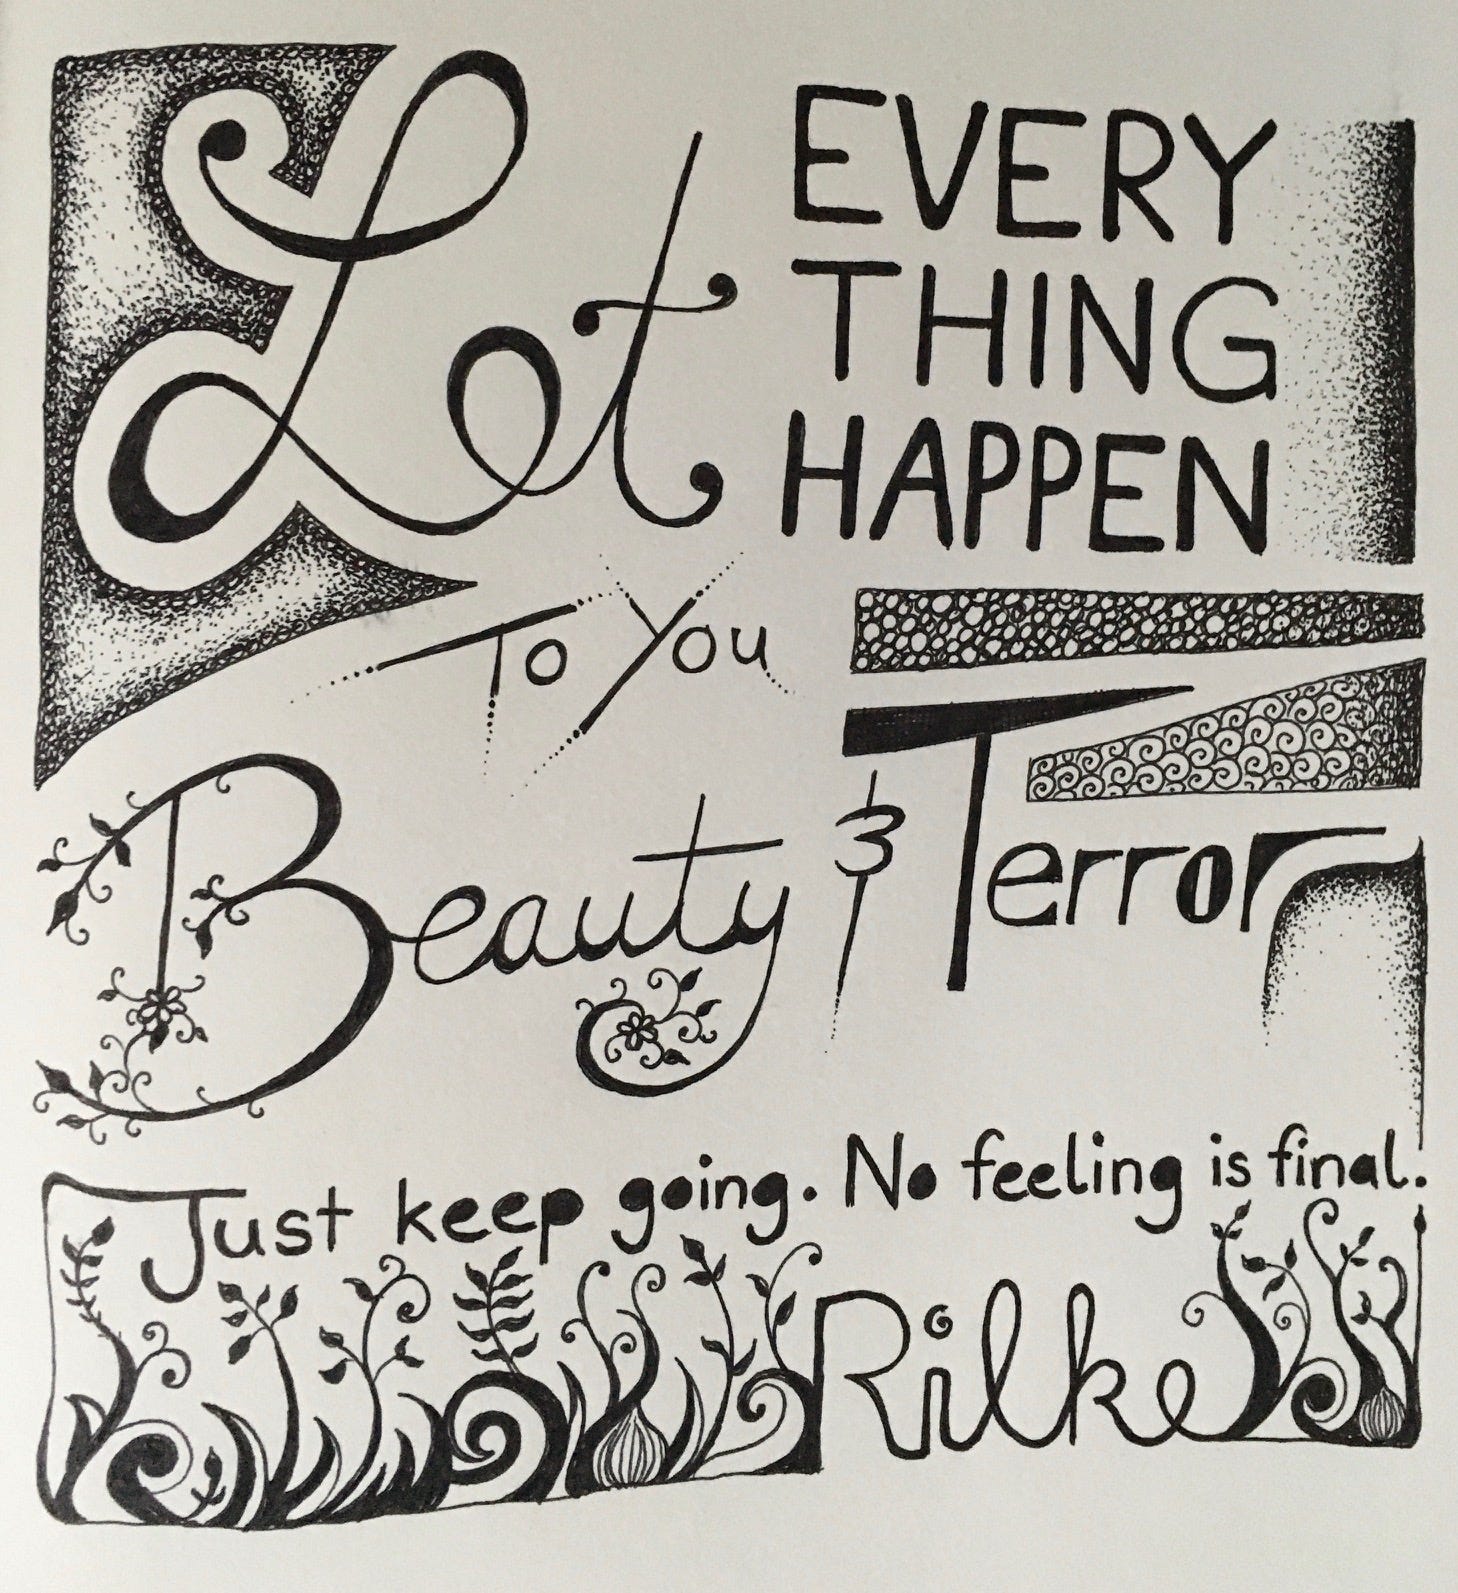 Let
EVERY
THING
HAPPEN
To You
Beauty & Terror
Just keep going. No feeling is final.
Rilke